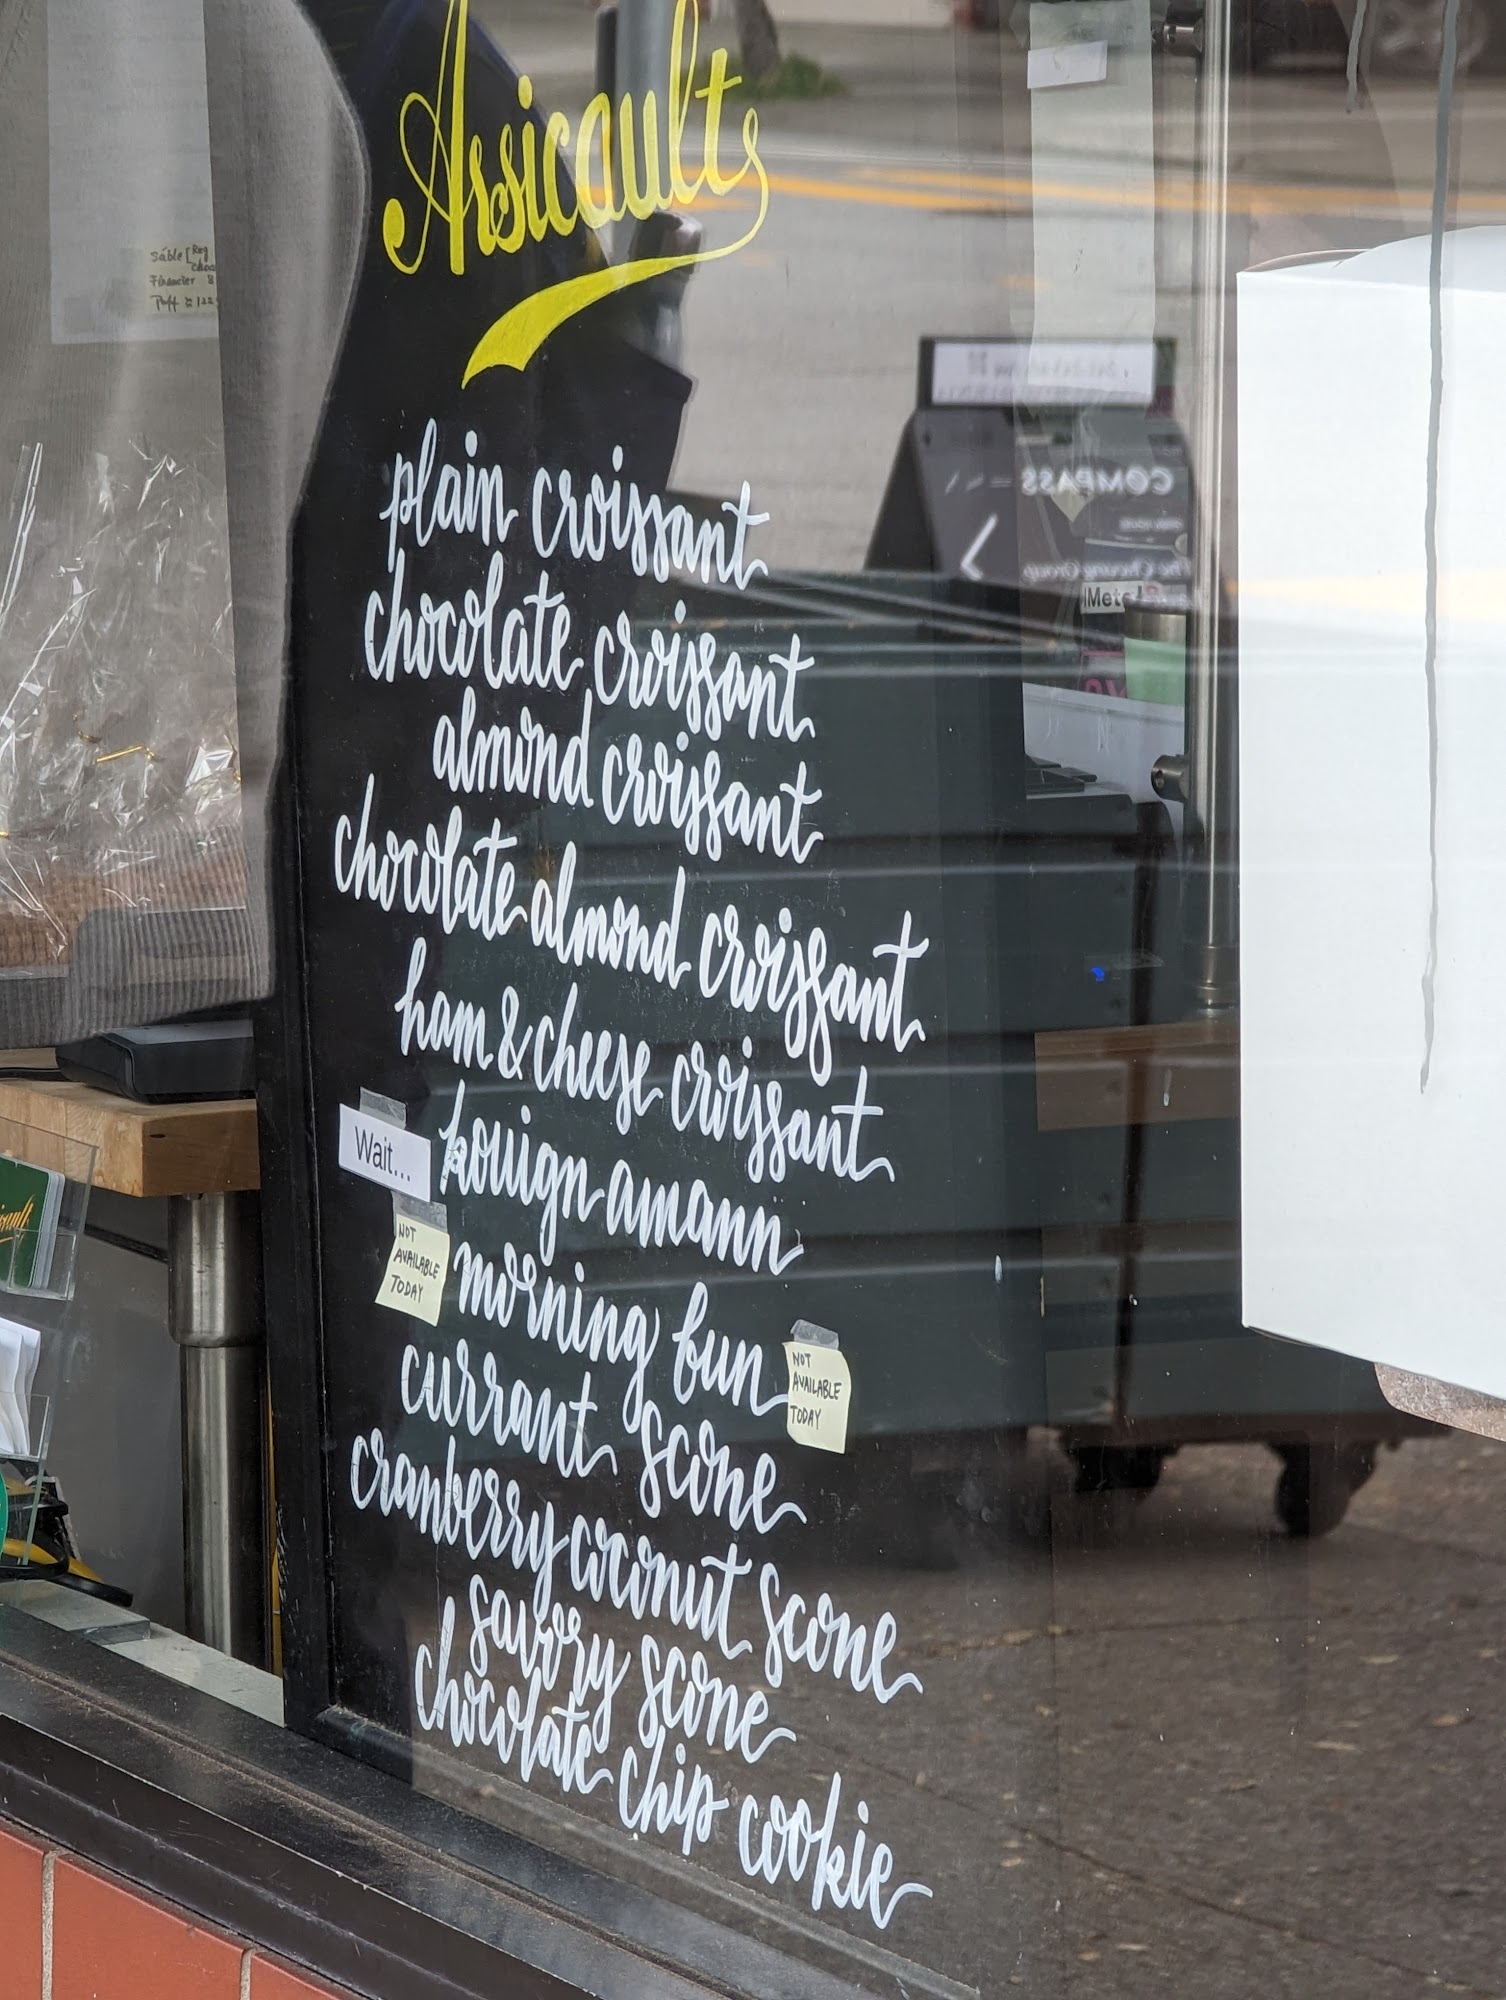 Arsicault
sáble [Reg
Financier 8
Puff
plain croissant
chocolate croissant
almond croissant
chocolate almond croissant
ham & cheese croissant
Wait...
kouign amann
NOT
AVAILABLE
TODAY
morning bun
NOT
AVAILABLE
TODAY
currant scone
cranberry coconut scone
savory scone
chocolate chip cookie
COMPASS
The Cheung Group